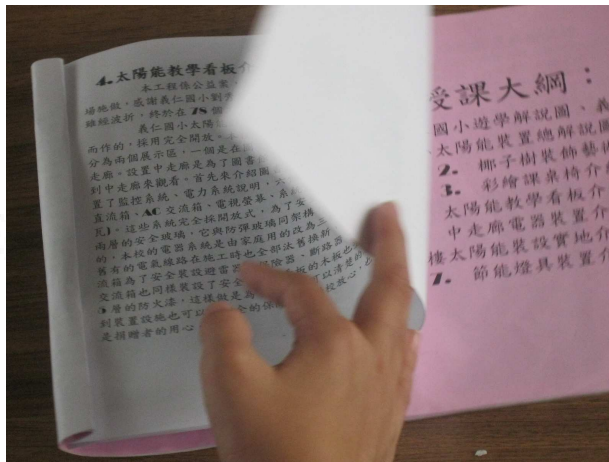 4.太陽能教學看板介
本工程係公益案,
場施做,感謝義仁國小劉
雖經波折,終於在78個
義仁國小太陽
而作的,採用完全開放,
分為兩個展示區,一個是在
走廊。設置中走廊是為了圖書
到中走廊來觀看。首先來介紹圖
置了監控系統、電力系統說明,
直流箱、AC交流箱、電視螢幕、系
瓦),這些系統完全採開放式,為了安
兩層的安全玻璃,它與防彈玻璃同架構
的,本校的電器系統是由家庭用的改為三
舊有的電氣線路在施工時也全部汰舊換新
流箱為了安全裝設避雷器 除器、斷路器
交流箱也同樣裝設了安全 看板的木板也
5層的防火漆,這樣做是為 以清楚的
到裝置設施也可以 全的保 校放心,
是捐贈者的用心
授課大綱:
國小遊學解說圖、義
太陽能裝置總解說圖
2. 椰子樹裝飾藝術
3. 彩繪課桌椅介紹
太陽能教學看板介
中走廊電器裝置介
樓太陽能裝設實地介
7. 節能燈具裝置介